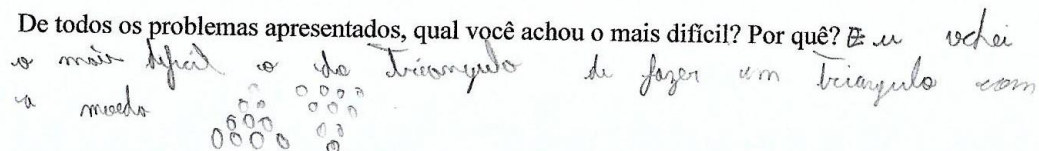 De todos os problemas apresentados, qual você achou o mais difícil? Por quê? Eu achei
o mais dificil o do triangulo de fazer um triangulo com
a moeda